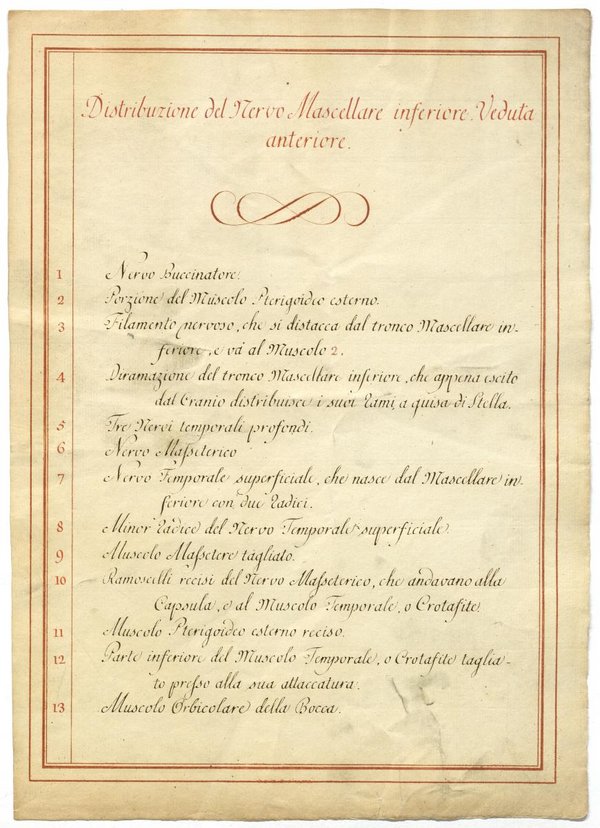 Distribuzione del Nervo Mascellare inferiore. Veduta
anteriore.
1 Nervo Buccinatore.
2 Porzione del Muscolo Pterigoideo esterno.
3 Filamento nervoso, che si distacca dal tronco Mascellare in-
feriore, e và al Muscolo 2.
4 Diramazione del tronco Mascellare inferiore, che appena escito
dal Cranio distribuisce i suoi Rami, a guisa di Stella.
5 Tre Nervi temporali profondi.
6 Nervo Masseterico
7 Nervo Temporale superficiale, che nasce dal Mascellare in-
feriore con due Radici.
8 Minor Radice del Nervo Temporale superficiale.
9 Muscolo Massetere tagliato.
10 Ramoscelli recisi del Nervo Masseterico, che andavano alla
Capsula, e al Muscolo Temporale, o Crotafite.
11 Muscolo Pterigoideo esterno reciso.
12 Parte inferiore del Muscolo Temporale, o Crotafite taglia-
to presso alla sua attaccatura.
13 Muscolo Orbicolare della Bocca.